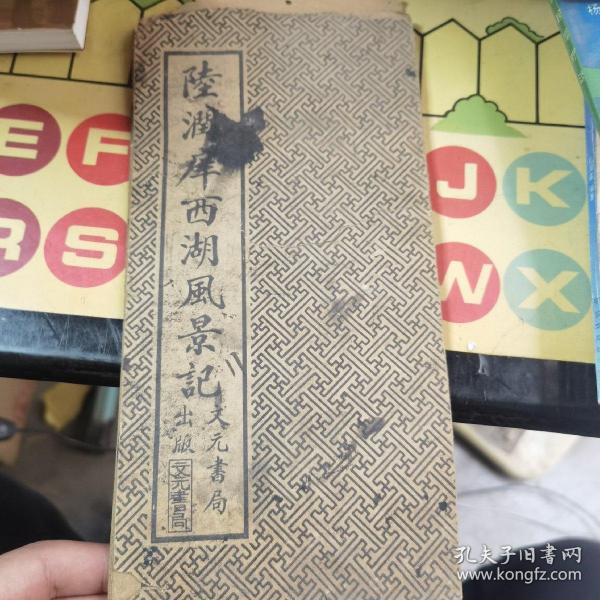 陸潤庠西湖風景記
文元書局
出版
文元書局
E F
J K
R S
W X
杨
孔夫子旧书网
www.kongfz.com